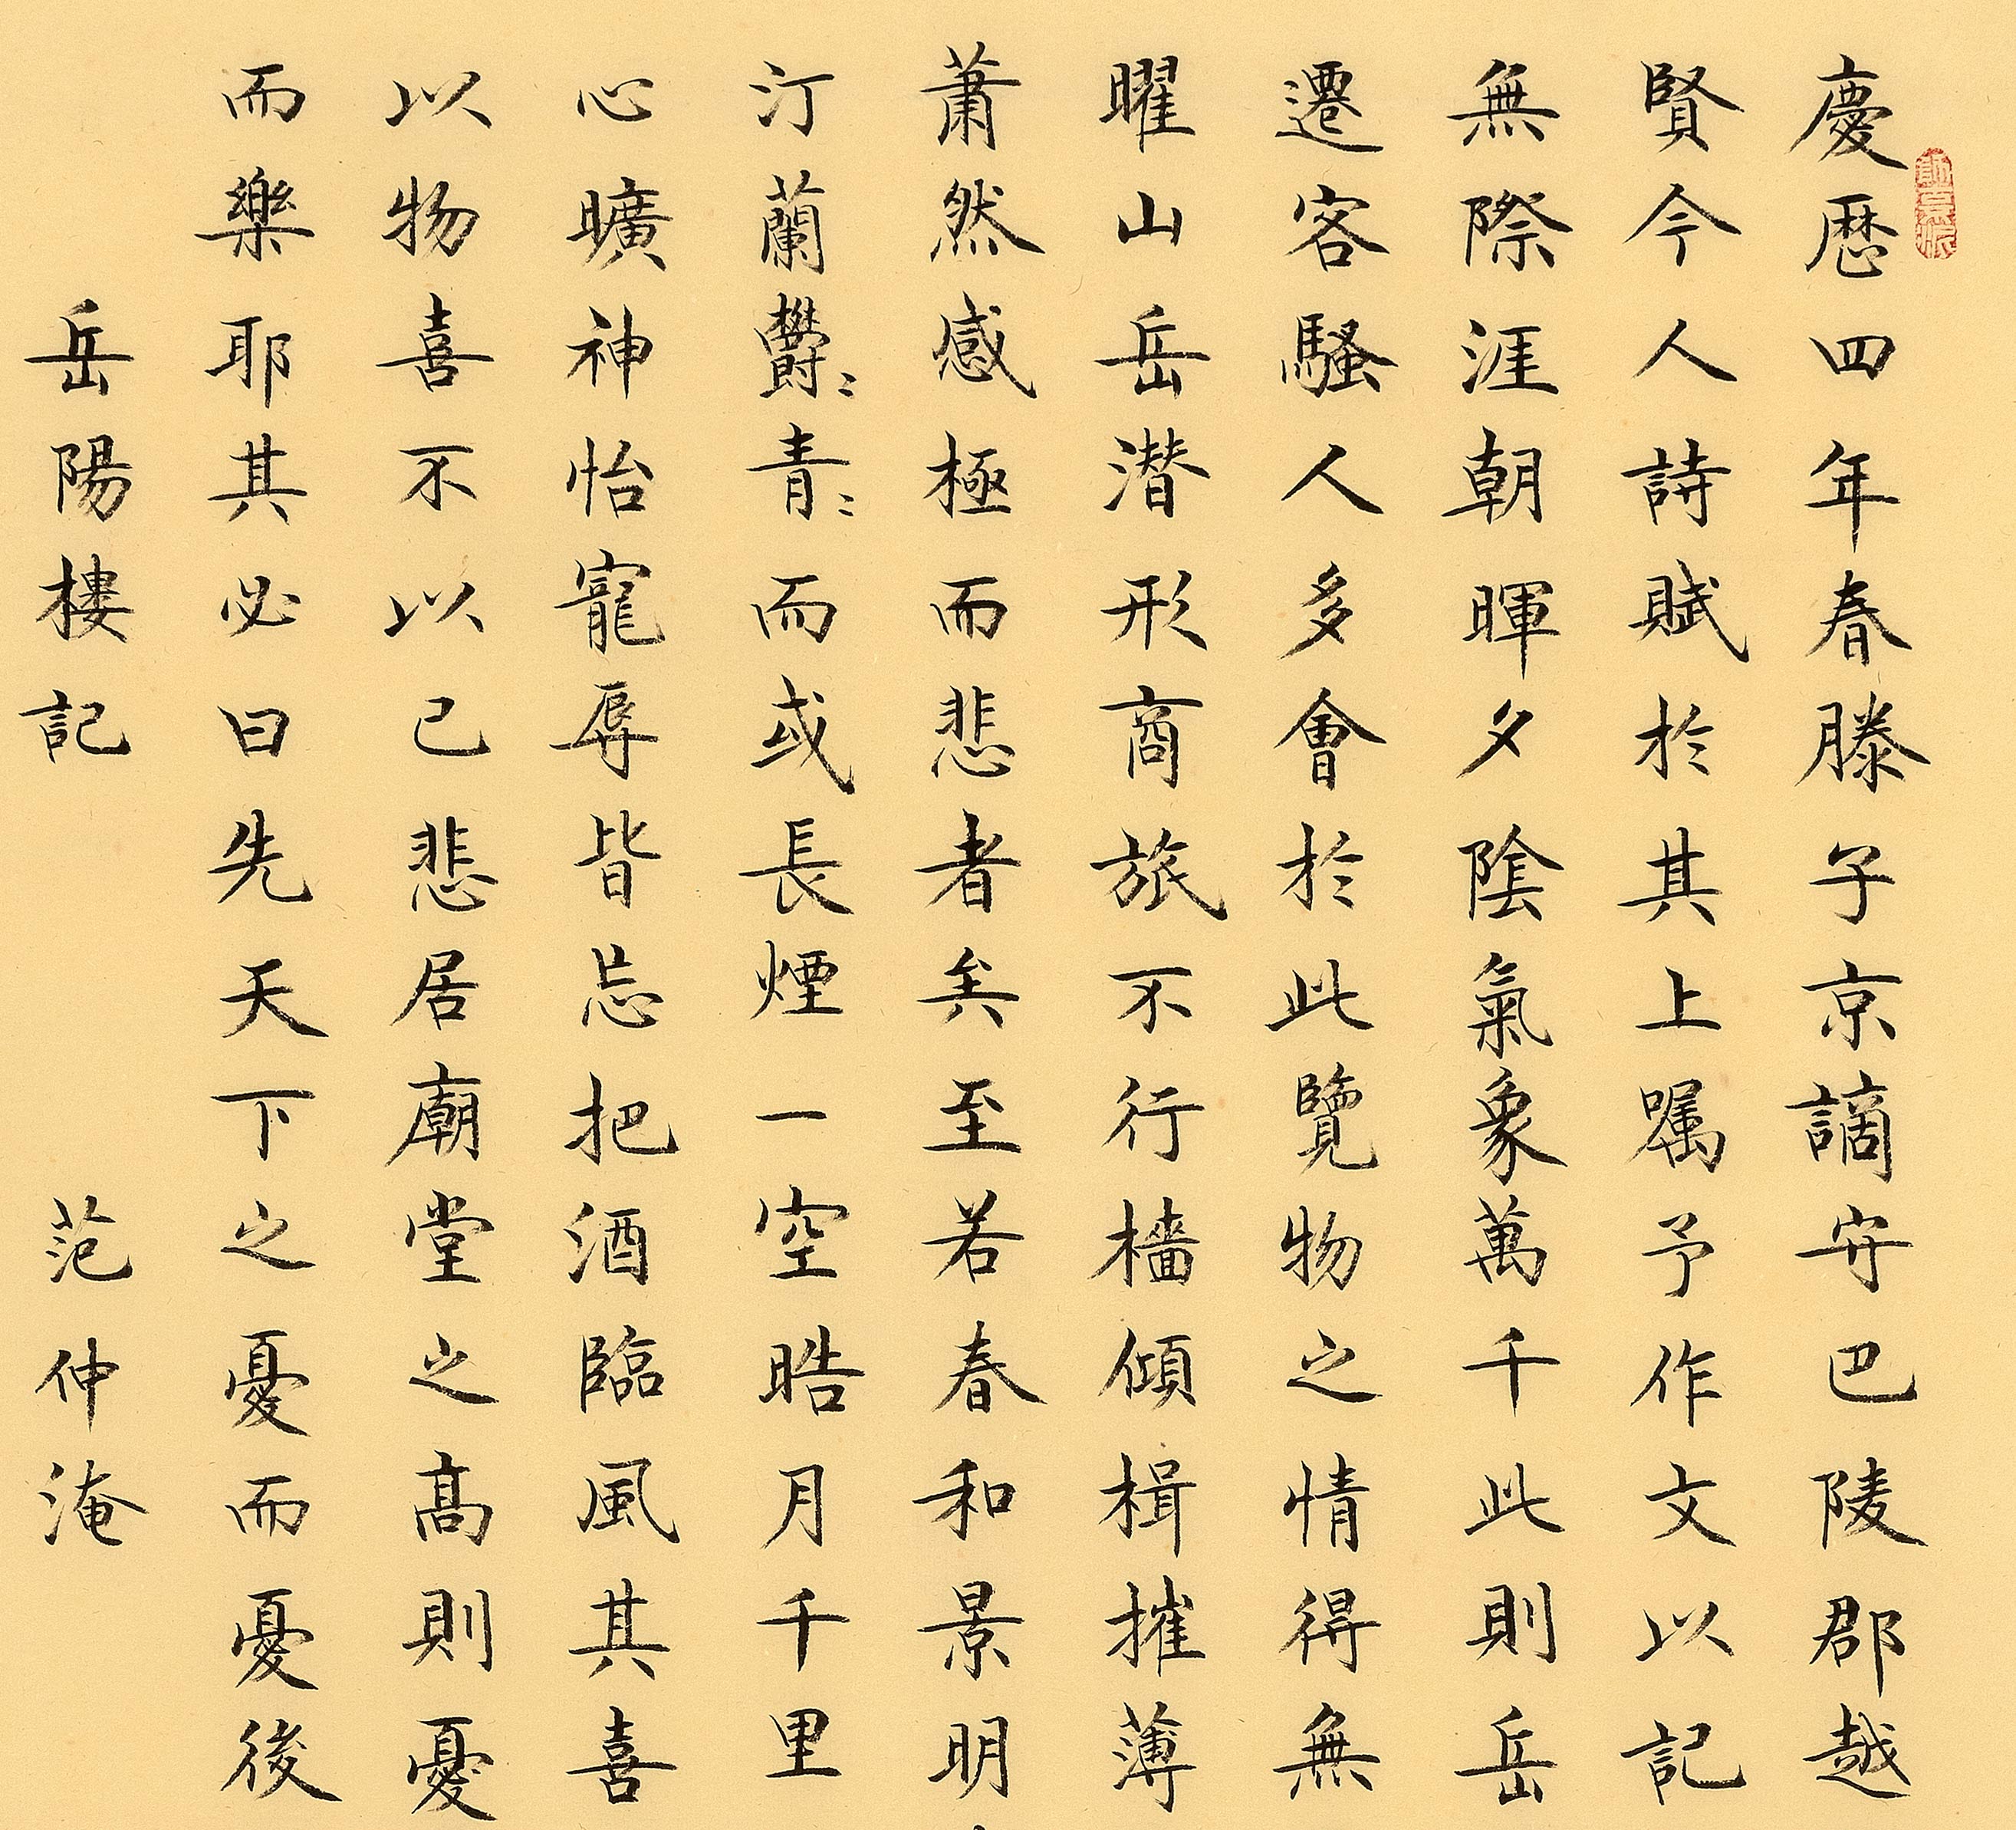 慶曆四年春滕子京謫守巴陵郡越
賢今人詩賦於其上囑予作文以記
無際涯朝暉夕陰氣象萬千此則岳
遷客騷人多會於此覽物之情得無
曜山岳潛形商旅不行檣傾楫摧薄
蕭然感極而悲者矣至若春和景明
汀蘭欝〻青〻而或長煙一空皓月千里
心曠神怡寵辱皆忘把酒臨風其喜
以物喜不以己悲居廟堂之高則憂
而樂耶其必曰先天下之憂而憂後
岳陽樓記 范仲淹